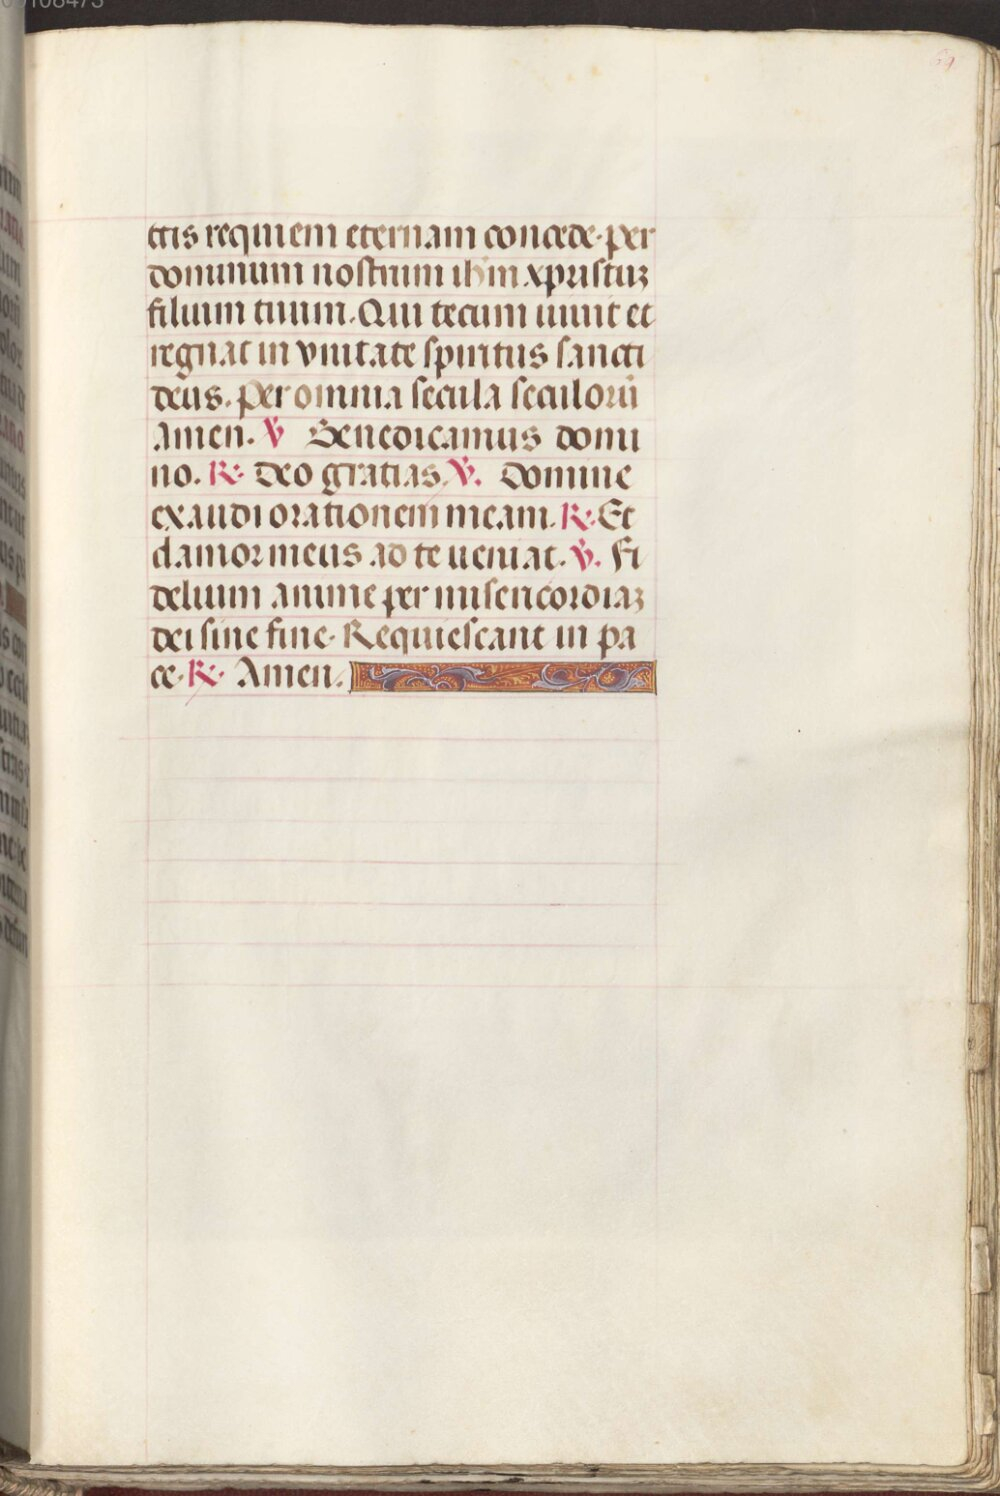 69
ctis requiem eternam concede. per
dominum nostrum ihm xpristuꝫ
filium tuum. Qui tecum uiuit et
regnat in vnitate spiritus sancti
deus. Per omnia secula seculorū
amen. V̕ Benedicamus domi
no. R̕. deo gratias. V̕. Domine
exaudi orationem meam. R̕. Et
clamor meus ad te ueniat. V̕. Fi
delium anime per misericordiaꝫ
dei sine fine. Requiescant in pa
ce. R̕. Amen.